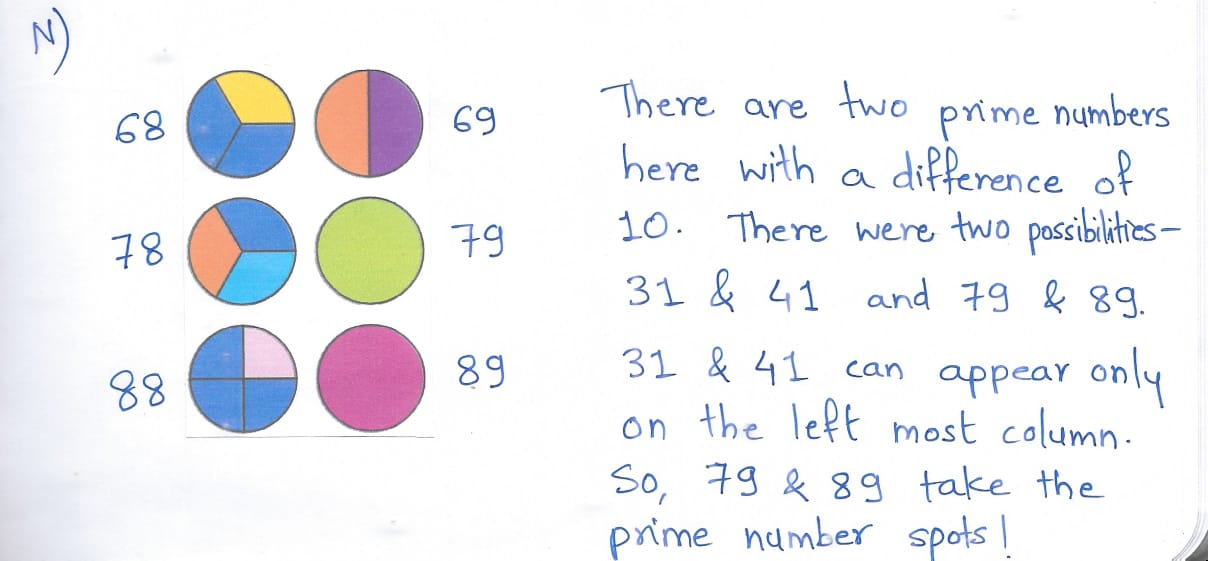 N)
68 69
78 79
88 89
There are two prime numbers
here with a difference of
10. There were two possibilities-
31 & 41 and 79 & 89.
31 & 41 can appear only
on the left most column.
So, 79 & 89 take the
prime number spots!